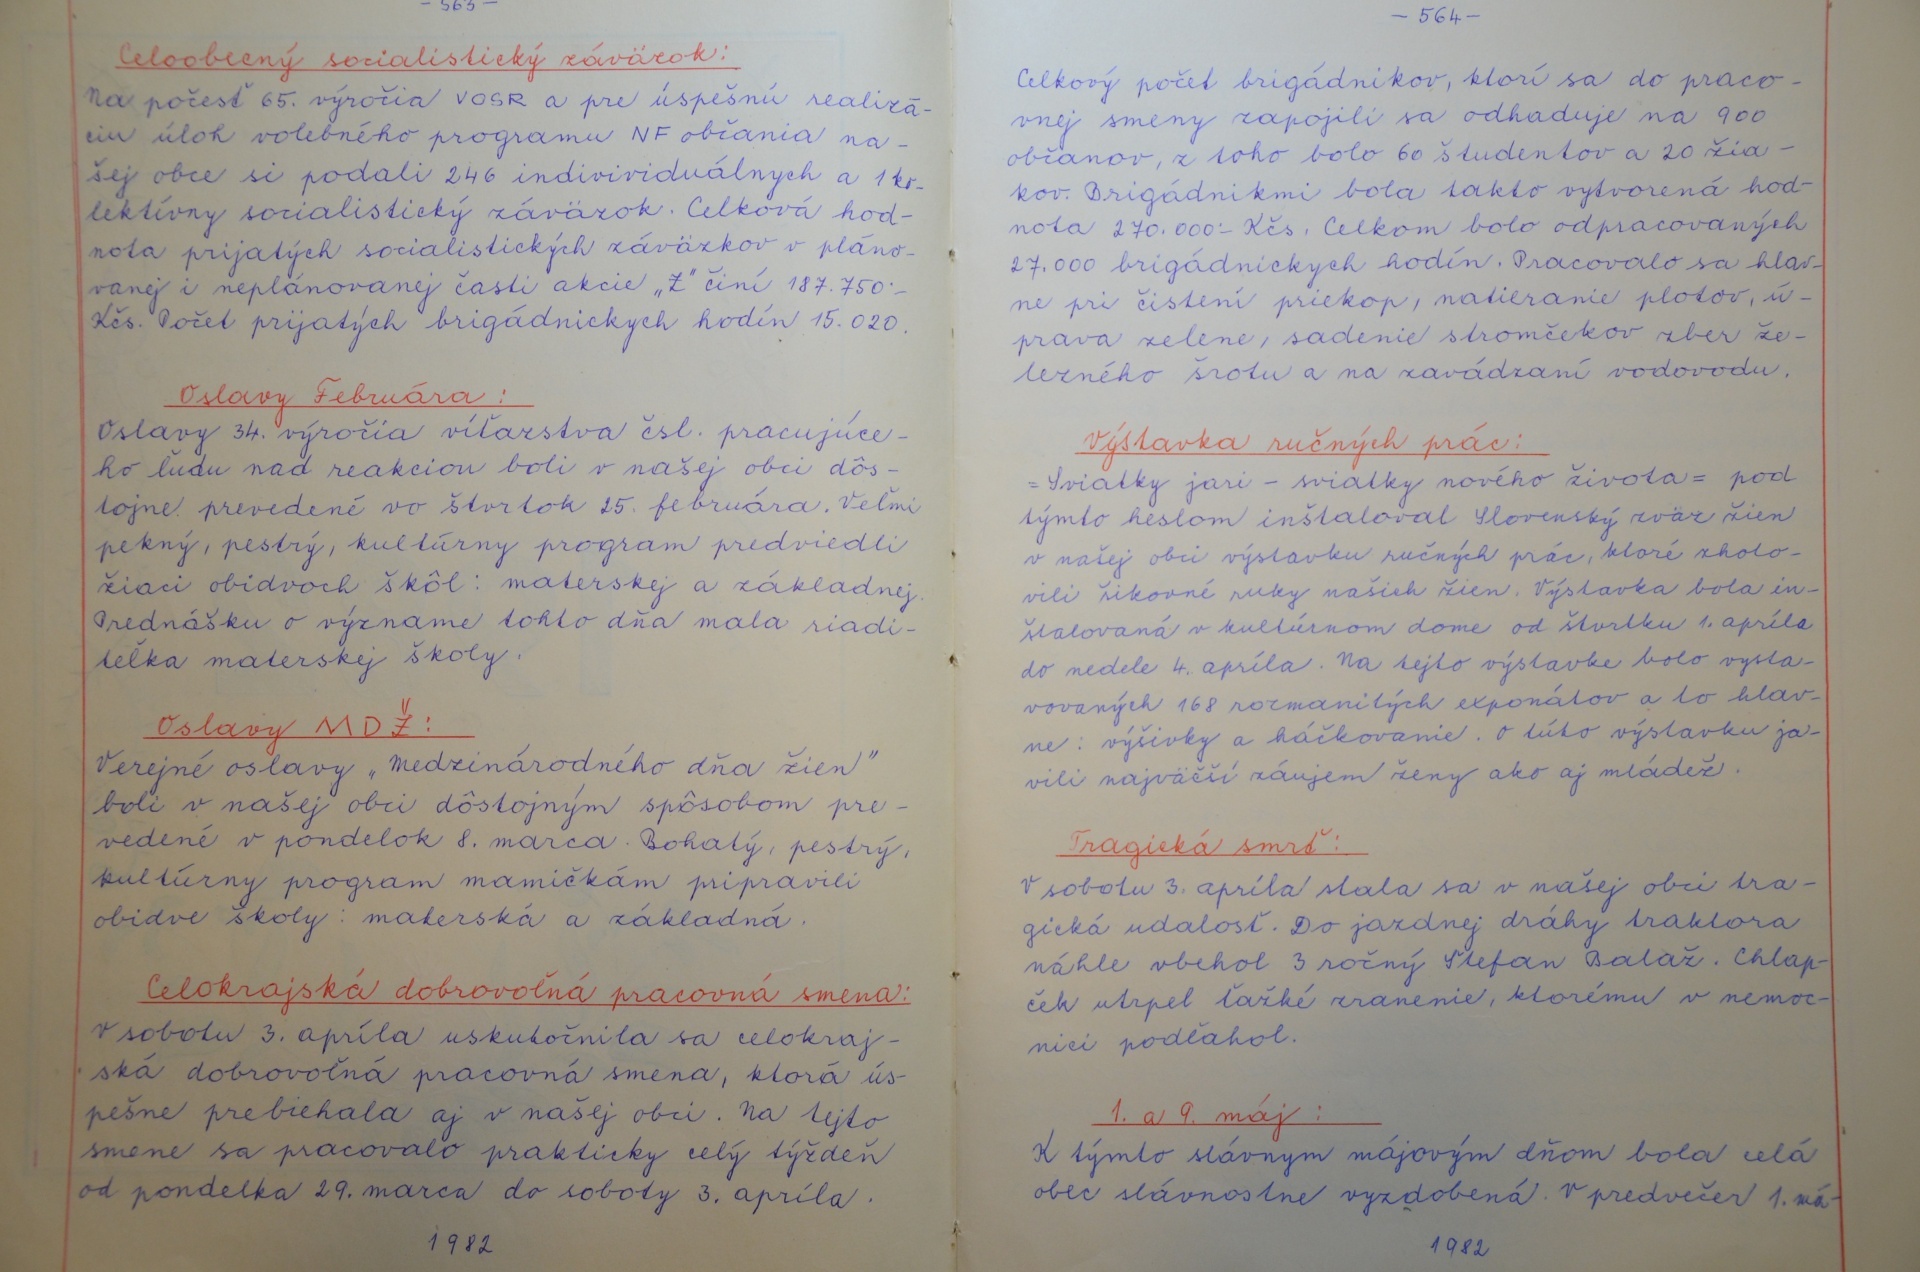 - 563 -
Celoobecný socialistický záväzok:
Na počesť 65. výročia VOSR a pre úspešnú realizá-
ciu úloh volebného programu NF občania na-
šej obce si podali 246 indivividuálnych a 1 ko-
lektívny socialistický záväzok. Celková hod-
nota prijatých socialistických záväzkov v pláno-
vanej i neplánovanej časti akcie „Z" činí 187.750.-
Kčs. Počet prijatých brigádnickych hodín 15.020.
Oslavy Februára:
Oslavy 34. výročia víťazstva čsl. pracujúce-
ho ľudu nad reakciou boli v našej obci dôs-
tojne prevedené vo štvrtok 25. februára. Veľmi
pekný, pestrý, kultúrny program predviedli
žiaci obidvoch škôl: materskej a základnej.
Prednášku o význame tohto dňa mala riadi-
teľka materskej školy.
Oslavy MDŽ:
Verejné oslavy „Medzinárodného dňa žien"
boli v našej obci dôstojným spôsobom pre-
vedené v pondelok 8. marca. Bohatý, pestrý,
kultúrny program mamičkám pripravili
obidve školy: materská a základná.
Celokrajská dobrovoľná pracovná smena:
V sobotu 3. apríla uskutočnila sa celokraj-
ská dobrovoľná pracovná smena, ktorá ús-
pešne prebiehala aj v našej obci. Na tejto
smene sa pracovalo prakticky celý týždeň
od pondelka 29. marca do soboty 3. apríla.
1982
- 564 -
Celkový počet brigádnikov, ktorí sa do praco-
vnej smeny zapojili sa odhaduje na 900
občanov, z toho bolo 60 študentov a 20 žia-
kov. Brigádnikmi bola takto vytvorená hod-
nota 270.000.- Kčs. Celkom bolo odpracovaných
27.000 brigádnickych hodín. Pracovalo sa hlav-
ne pri čistení priekop, natieranie plotov, ú-
prava zelene, sadenie stromčekov zber že-
lezného šrotu a na zavádzaní vodovodu.
Výstavka ručných prác:
= Sviatky jari - sviatky nového života = pod
týmto heslom inštaloval Slovenský zväz žien
v našej obci výstavku ručných prác, ktoré zhoto-
vili šikovné ruky našich žien. Výstavka bola in-
štalovaná v kultúrnom dome od štvrtku 1. apríla
do nedele 4. apríla. Na tejto výstavke bolo vysta-
vovaných 168 rozmanitých exponátov a to hlav-
ne: výšivky a háčkovanie. O túto výstavku ja-
vili najväčší záujem ženy ako aj mládež.
Tragická smrť:
V sobotu 3. apríla stala sa v našej obci tra-
gická udalosť. Do jazdnej dráhy traktora
náhle vbehol 3 ročný Štefan Baláž. Chlap-
ček utrpel ťažké zranenie, ktorému v nemoc-
nici podľahol.
1. a 9. máj:
K týmto slávnym májovým dňom bola celá
obec slávnostne vyzdobená. V predvečer 1. má-
1982